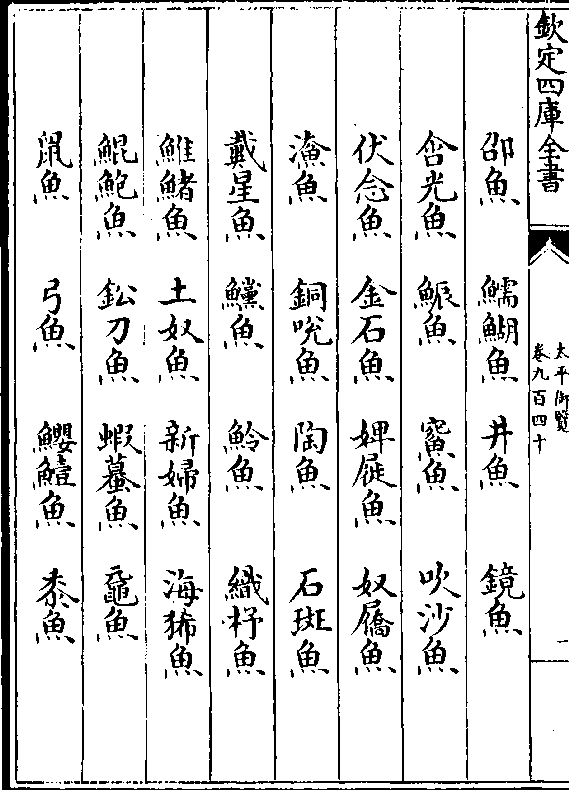 欽定四庫全書
邵魚 鱬䱐魚 井魚 鏡魚
含光魚 䱅魚 魚 吹沙魚
伏念魚 金石魚 婢屣魚 奴屩魚
漁魚 銅哾魚 陶魚 石斑魚
戴星魚 魚 魿魚 織杼魚
䱦䱇魚 土奴魚 新婦魚 海狶魚
鯤鮑魚 鈆刀魚 蝦蟇魚 黿魚
䑕魚 弓魚 魚 黍魚
太平御覽
卷九百四十
一